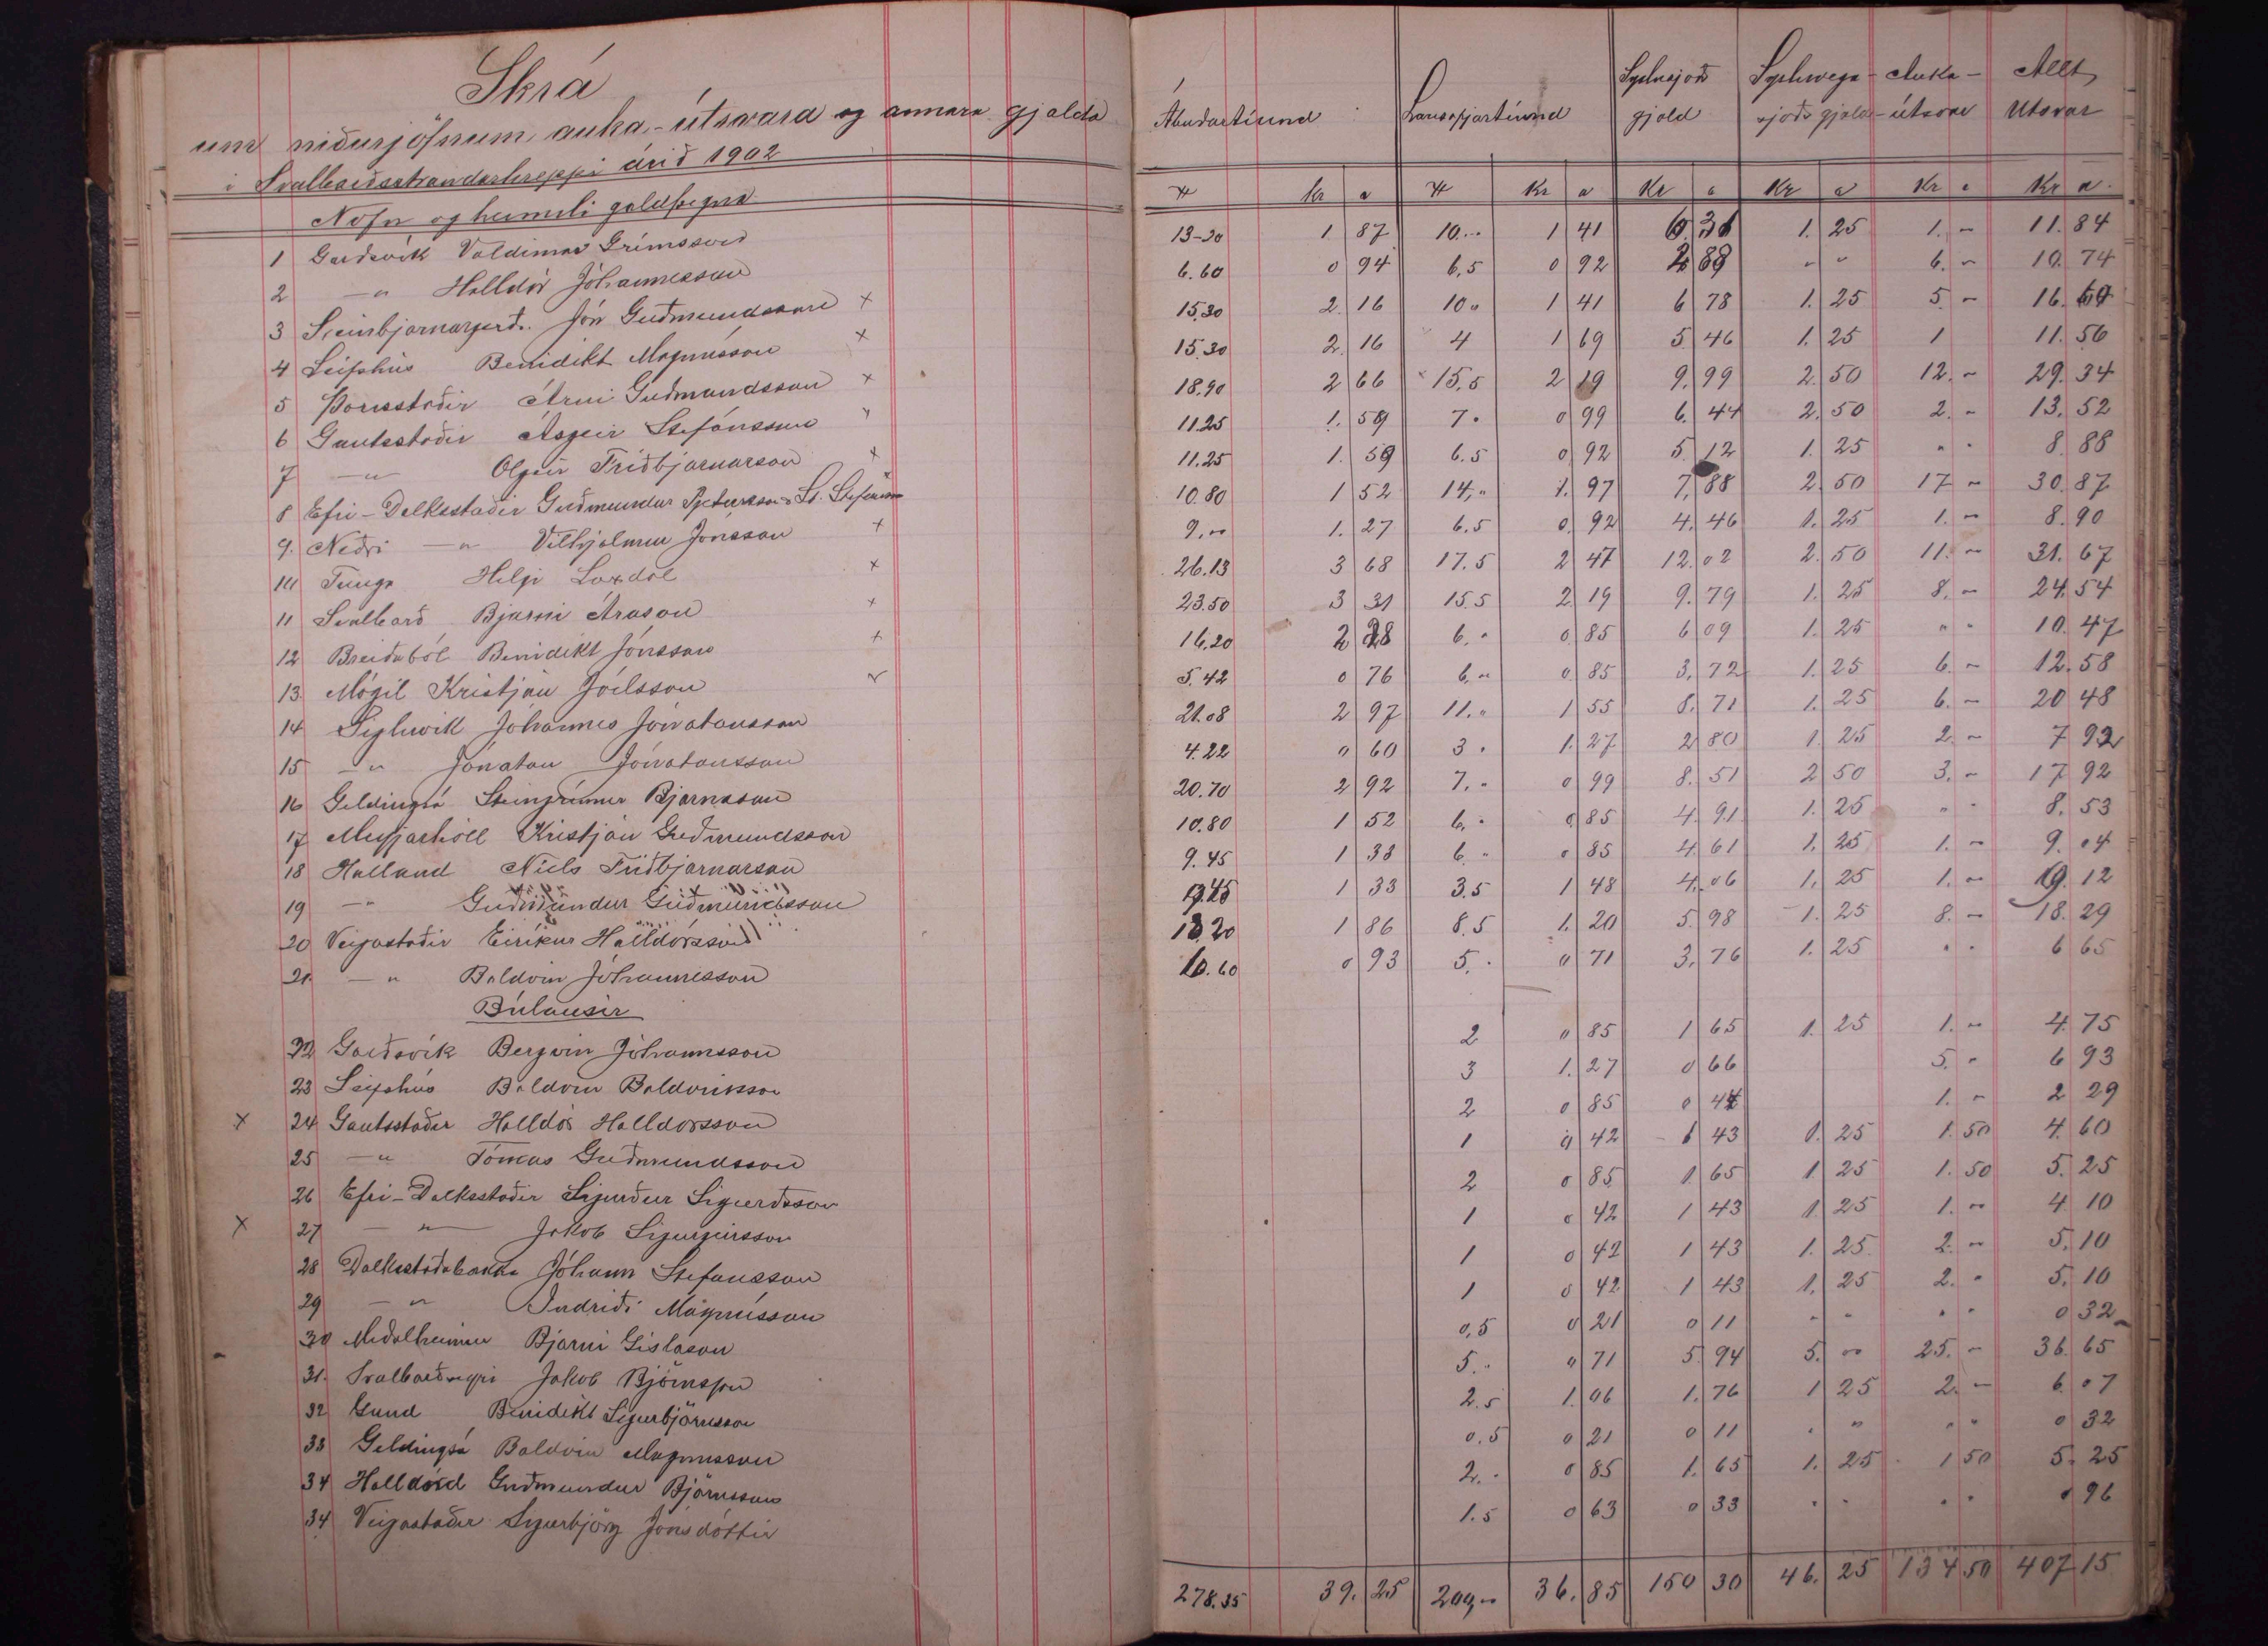 Skrá
um niðurjöfnum auka-útsvara og annara gjalda
í Svalbarðsstrandarhreppi árið 1902
Nöfn og heimili galdþegna
1 Garðsvík Valdimar Grímsson
2 -"- Halldór Jóhannesson
3 Sveinbjarnargerði Jón Guðmundsson x
4 Leifshús Benidikt Magnússon x
5 Þórisstaðir Árni Guðmundsson x
6 Gautsstaðir Ásgeir Stefánsson
7 -"- Olgeir Friðbjarnarson x
8 Efri-Dalksstaðir Guðmundur Pjetursson St. Stefánsson
9. Neðri -"- Vilhjálmur Jónsson +
10 Tunga Helgi Laxdal x
11 Svalbarð Bjarni Arason +
12 Breiðaból Benidikt Jónsson +
13 Mógil Kristján Jóelsson
14 Sigluvík Jóhannes Jónatansson
15 -"- Jónatan Jónatansson
16 Geldingsá Steingrímur Bjarnason
17 Meyjarhóll Kristján Guðmundsson
18 Halland Níels Friðbjarnarson
19 -"- Guðmundur Guðmundsson
20 Veigastaðir Eiríkur Halldórsson
21. -"- Baldvin Jóhannesson
Búlausir
22 Garðsvík Bergvin Jóhannsson
23 Leifshús Baldvin Baldvinsson
x 24 Gautsstaðir Halldór Halldorsson
25 -"- Tómas Guðmundsson
26 Efri-Dalksstaðir Sigurður Sigurðsson
x 27 -"- Jakob Sigurgeirsson
28 Dalksstaðabakka Jóhann Stefansson
29 -"- Indriði Magnússon
30 Meðalheimur Bjarni Gíslason
31. Svalbarðseyri Jakob Björnsson
32 Gund Benidikt Sigurbjörnsson
33 Geldingsá Baldvin Magnusson
34 Halland Guðmundur Björnsson
34 Veigastaðir Sigurbjörg Jónsdóttir
Ábúðartíund Lausafjártíund Sýslusjóðs Sýsluvega- Auka- Allt
gjald sjóðs gjald útsvar Utsvar
kr a Kr a Kr a Kr a Kr a Kr a
13-20 1 87 10.- 1 41 6.31 1. 25 1. - 11. 84
6.60 0 94 6,5 0 92 2 88 " " 6. - 10. 74
15,30 2. 16 10 " 1 41 6 78 1. 25 5. - 16. 60
15.30 2. 16 4 1 69 5. 46 1. 25 1 11. 56
18.90 2 66 15,5 2 19 9. 99 2. 50 12. - 29. 34
11.25 1. 59 7. 0 99 6. 44 2. 50 2. - 13. 52
11.25 1. 59 6.5 0 92 5. 12 1. 25 " " 8. 88
10.80 1 52 14," 1. 97 7, 88 2. 50 17 - 30. 87
9,-- 1. 27 6.5 0. 92 4. 46 1. 25 1. - 8. 90
26.13 3 68 17.5 2 47 12. 02 2. 50 11. - 31. 67
23.50 3 31 15.5 2 19 9. 79 1. 25 8. - 24. 54
16,20 2 28 6. " 0 85 6 09 1. 25 " " 10. 47
5.42 0 76 6. " 0. 85 3, 72 1. 25 6. - 12. 58
21.08 2 97 11. " 1 55 8. 71 1. 25 6. - 20 48
4.22 0 60 3. 1. 27 2 80 1. 25 2. - 7 92
20.70 2 92 7. " 0 99 8. 51 2 50 3. - 17 92
10.80 1 52 6. " 0 85 4. 91 1. 25 " " 8. 53
9.45 1 33 6. " 0 85 4. 61 1. 25 1. - 9. 04
9.45 1 33 3.5 1 48 4. 06 1, 25 1. - 9. 12
13.20 1 86 8.5 1. 20 5. 98 1. 25 8. - 18. 29
6.60 0 93 5. " 0 71 3, 76 1. 25 " " 6 65
2 0 85 1 65 1. 25 1. - 4. 75
3 1. 27 0 66 5. - 6 93
2 0 85 0 44 1. - 2 29
1 0 42 1 43 1. 25 1. 50 4. 60
2 0 85 1. 65 1 25 1. 50 5. 25
1 0 42 1 43 1. 25 1. - 4 10
1 0 42 1 43 1. 25 2. - 5. 10
1 0 42 1 43 1, 25 2. " 5. 10
0,5 0 21 0 11 " " " " 0 32
5. " 0 71 5. 94 5. -- 25. - 36. 65
2.5 1. 06 1. 76 1 25 2. - 6. 07
0.5 0 21 0 11 " " " " 0 32
2. " 0 85 1. 65 1. 25 1 50 5. 25
1.5 0 63 0 33 " " " " 0 96
278.35 39. 25 209,-- 36. 85 150 30 46. 25 134 50 407 15